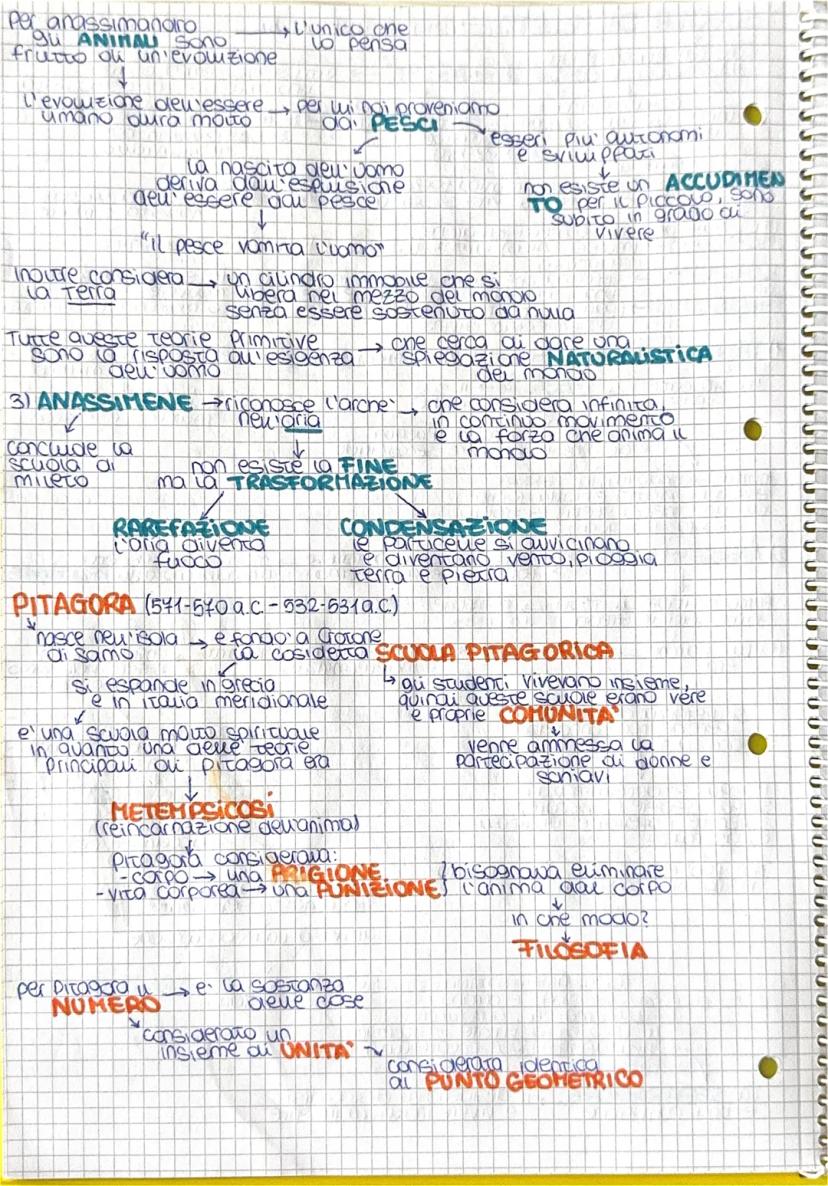 per anassimandro → l'unico che
gli ANIMALI sono lo pensa
frutto di un'evoluzione
l'evoluzione dell'essere → per lui noi proveniamo
umano dura molto dai PESCI
esseri piu' autonomi
e sviluppati
la nascita dell'uomo
deriva dall'espulsione
dell'essere dal pesce
non esiste un ACCUDIMEN
TO per il piccolo, sono
subito in grado di
vivere
"il pesce vomita l'uomo"
inoltre considera → un cilindro immobile che si
la Terra libera nel mezzo del mondo
senza essere sostenuto da nulla
Tutte queste teorie primitive → che cerca di dare una
sono la risposta all'esigenza spiegazione NATURALISTICA
dell'uomo del mondo
3) ANASSIMENE → riconosce l'arche' → che considera infinita,
nell'aria in continuo movimento
e la forza che anima il
mondo
conclude la
scuola di
mileto
non esiste la FINE
ma la TRASFORMAZIONE
RAREFAZIONE
l'aria diventa
fuoco
CONDENSAZIONE
le particelle si avvicinano
e diventano vento, pioggia
terra e pietra
PITAGORA (571-570 a.C. - 532-531 a.C.)
nasce nell'isola → e fondo' a Crotone
di Samo la cosidetta SCUOLA PITAGORICA
si espande in grecia
e in italia meridionale
gli studenti vivevano insieme,
quindi queste scuole erano vere
e proprie COMUNITA'
e' una scuola molto spirituale
in quanto una delle teorie
principali di pitagora era
venne ammessa la
partecipazione di donne e
schiavi
METEMPSICOSI
(reincarnazione dell'anima)
Pitagora considerava:
- corpo → una PRIGIONE
- vita corporea → una PUNIZIONE
bisognava eliminare
l'anima dal corpo
in che modo?
FILOSOFIA
per Pitagora il → e' la sostanza
NUMERO delle cose
considerato un
insieme di UNITA'
considerata identica
al PUNTO GEOMETRICO